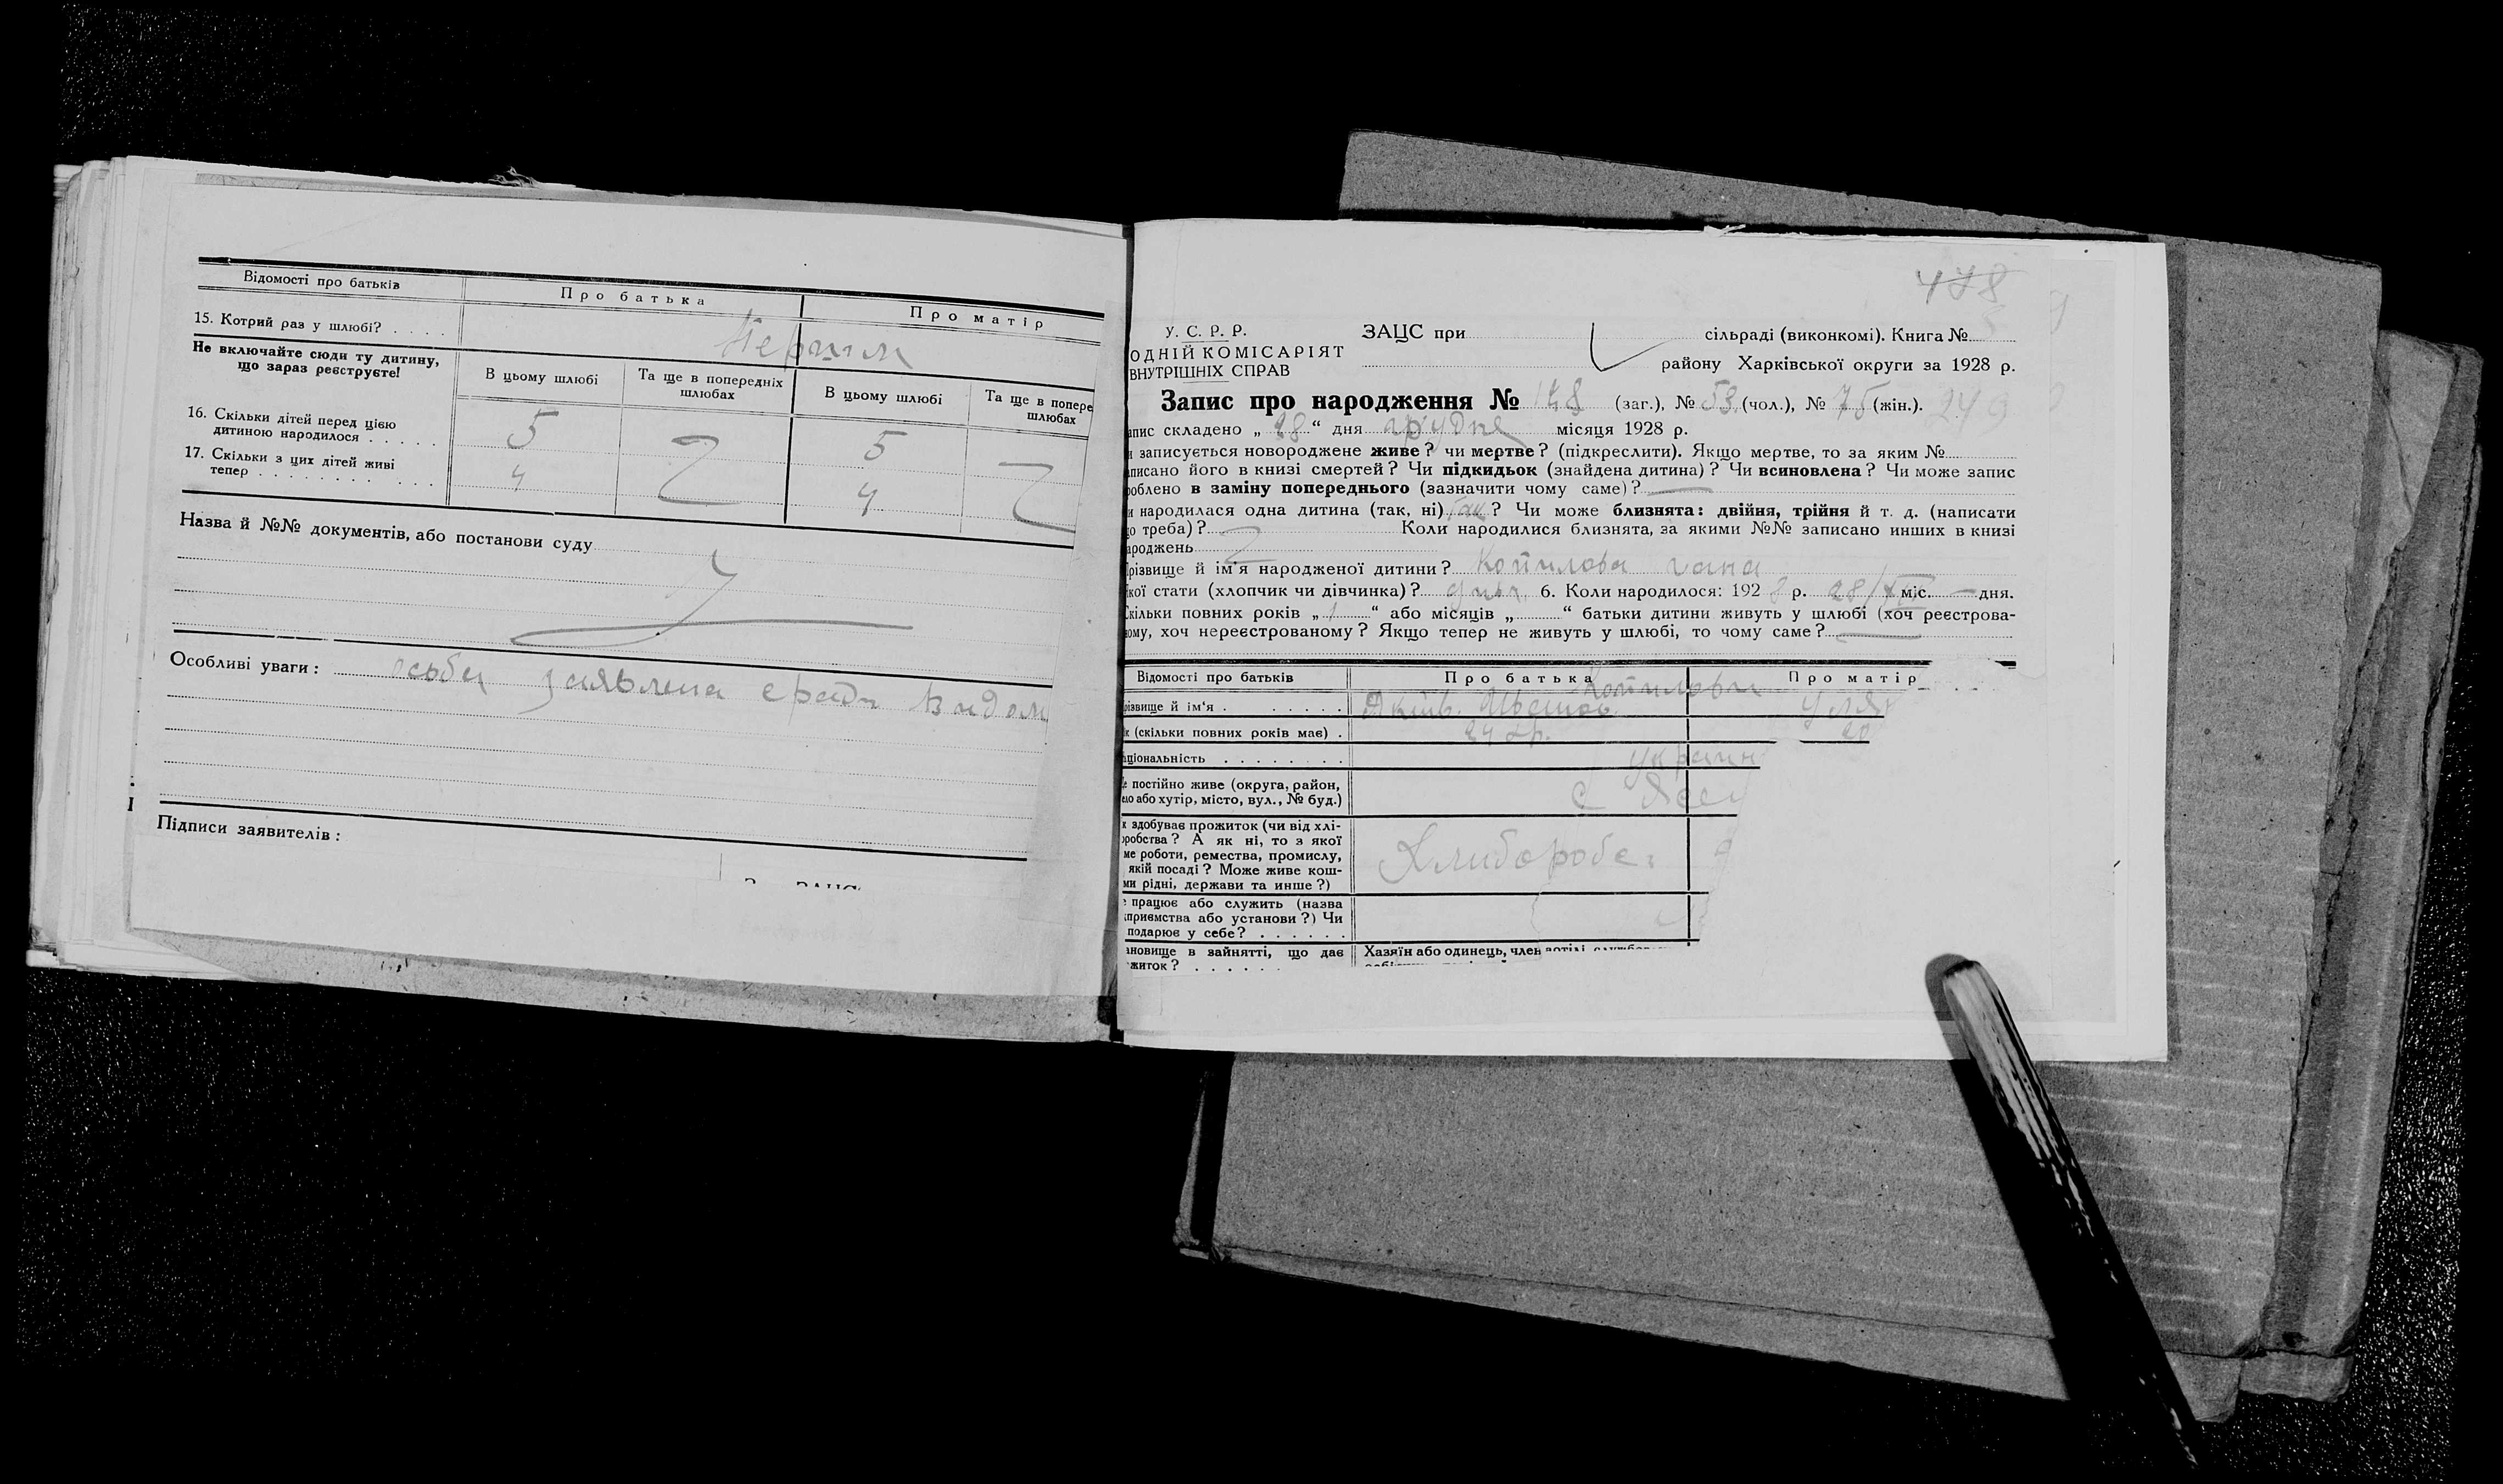 Відомості про батьків
Про батька
Про матір
15. Котрий раз у шлюбі? . . . .
Першим
Не включайте сюди ту дитину,
що зараз реєструєте!
В цьому шлюбі
Та ще в попередніх
шлюбах
В цьому шлюбі
Та ще в попере
шлюбах
16. Скільки дітей перед цією
дитиною народилося . . . . .
5
5
17. Скільки з цих дітей живі
тепер . . . . . . . . . . .
4
4
Назва й №№ документів, або постанови суду
Особливі уваги: особа заявлена
Підписи заявителів:
478
У. С. Р. Р.
ОДНІЙ КОМІСАРІЯТ
ВНУТРІШНІХ СПРАВ
ЗАЦС при
сільраді (виконкомі). Книга №
району Харківської округи за 1928 р.
Запис про народження № 148 (заг.), № 53 (чол.), № 75 (жін.).
апис складено „ 28 “ дня грудня місяця 1928 р.
и записується новороджене живе? чи мертве? (підкреслити). Якщо мертве, то за яким №
аписано його в книзі смертей? Чи підкидьок (знайдена дитина)? Чи всиновлена? Чи може запис
роблено в заміну попереднього (зазначити чому саме)? —
и народилася одна дитина (так, ні) так ? Чи може близнята: двійня, трійня й т. д. (написати
о треба)? Коли народилися близнята, за якими №№ записано инших в книзі
ароджень
різвище й ім'я народженої дитини? Копилова гана
кої стати (хлопчик чи дівчинка)? 6. Коли народилося: 1928 р. 28/XII міс. — дня.
кільки повних років „ 1 “ або місяців „ “ батьки дитини живуть у шлюбі (хоч реєстрова-
ому, хоч нереєстрованому? Якщо тепер не живуть у шлюбі, то чому саме? —
Відомості про батьків
Про батька
Про матір
Копилови
різвище й ім'я . . . . . .
Яків.
Уля
к (скільки повних років має) .
24
20
аціональність . . . . . . . .
Україн
е постійно живе (округа, район,
ело або хутір, місто, вул., № буд.)
с
к здобуває прожиток (чи від хлі-
оробства? А як ні, то з якої
ме роботи, ремества, промислу,
якій посаді? Може живе кош-
ми рідні, держави та инше?)
Хлибороб
е працює або служить (назва
приємства або установи?) Чи
подарює у себе? . . . . . .
ановище в зайнятті, що дає
житок? . . . . . .
Хазяїн або одинець, член